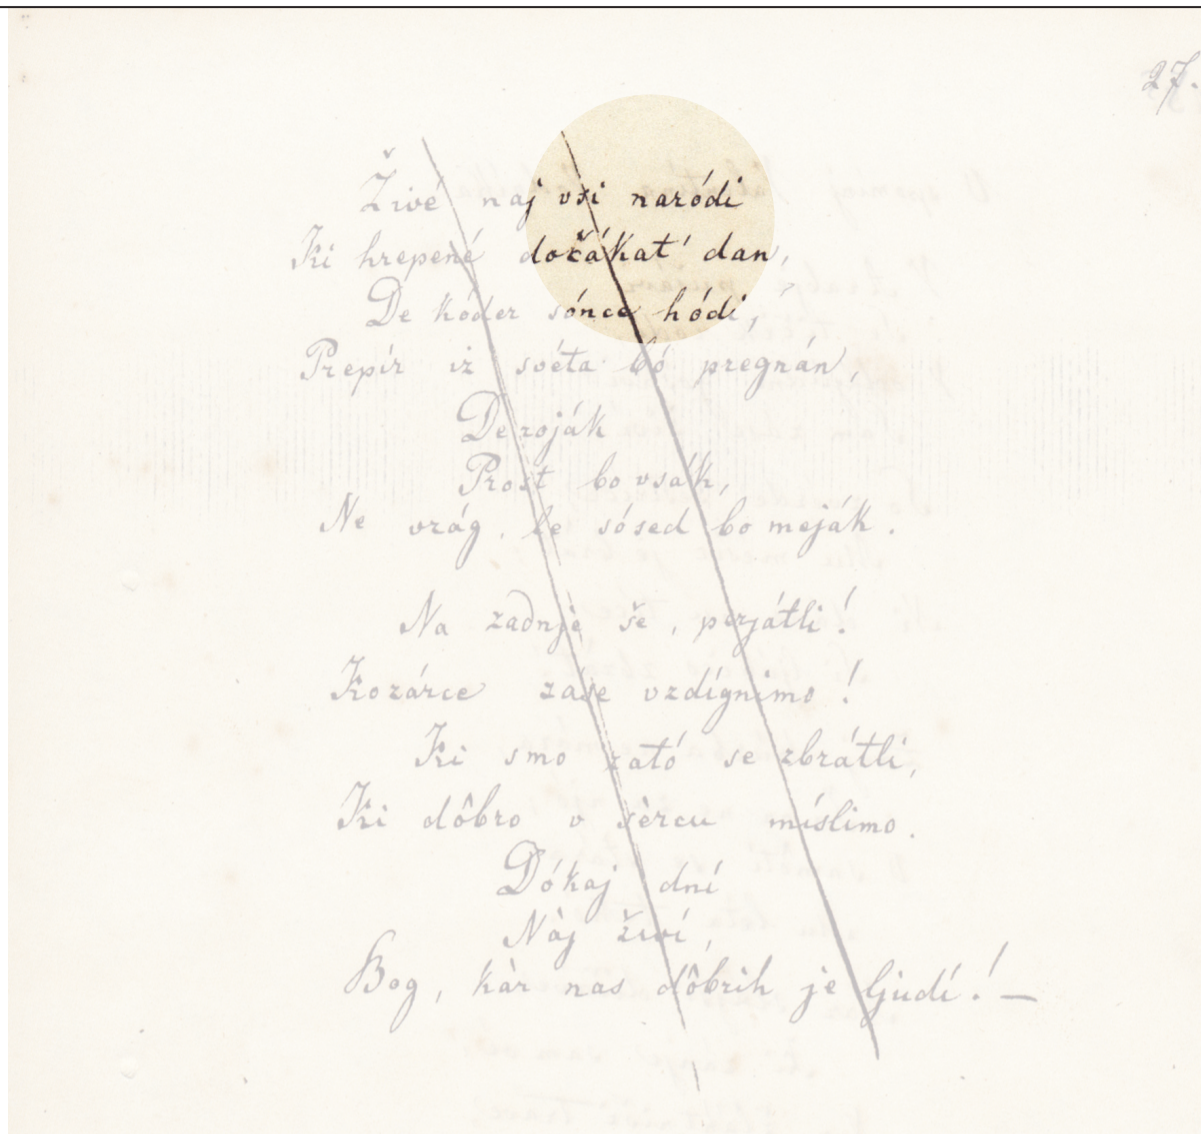 27.
Živé naj vsi naródi
Ki hrepené dočákat' dan,
De kóder sónce hódi,
Prepír iz svéta bó pregnán,
De roják
Prost bo vsák,
Ne vrág, le sósed bo meják.
Na zadnje še, perjátli!
Kozárce záse vzdígnimo!
Ki smo zató se zbrátli,
Ki dôbro v sèrcu míslimo.
Dókaj dní
Nàj živí,
Bog, kàr nas dôbrih je ljudí! —